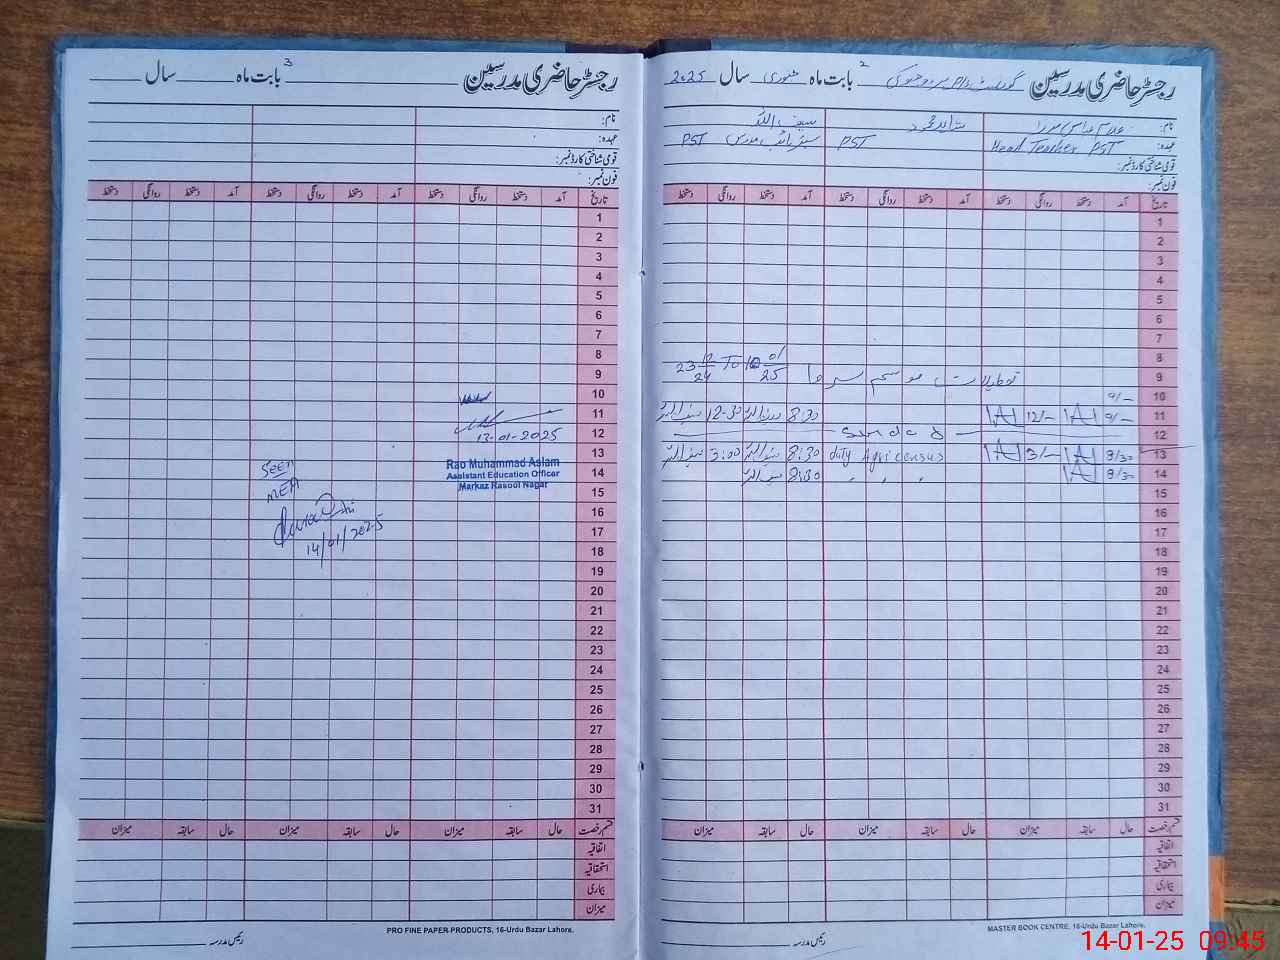 رجسٹر حاضری مدرسین گورنمنٹ بابت ماہ جنوری سال 2025
2
نام: غلام عباس مرزا شاہد محمود سیف اللہ
عہدہ: Head Teacher PST PST مدرس PST
قومی شناختی کارڈ نمبر:
فون نمبر:
تاریخ آمد دستخط روانگی دستخط آمد دستخط روانگی دستخط آمد دستخط روانگی دستخط
1
2
3
4
5
6
7
8
23 12/24 To 10 01/25
9 تعطیلات موسم سرما
10 9/-
11 9/- 12/- 8:30 سیف اللہ 12-30 سیف اللہ
12 Sunday
13 8/30 3/- duty Agri census 8:30 سیف اللہ 3:00 سیف اللہ
14 8/30 8:30 سیف اللہ
15
16
17
18
19
20
21
22
23
24
25
26
27
28
29
30
31
قسم رخصت حال سابقہ میزان حال سابقہ میزان حال سابقہ میزان
اتفاقیہ
استحقاقیہ
بیماری
میزان
رئیس مدرسہ
MASTER BOOK CENTRE, 16-Urdu Bazar Lahore.
رجسٹر حاضری مدرسین بابت ماہ سال
3
نام:
عہدہ:
قومی شناختی کارڈ نمبر:
فون نمبر:
تاریخ آمد دستخط روانگی دستخط آمد دستخط روانگی دستخط آمد دستخط روانگی دستخط
1
2
3
4
5
6
7
8
9
10
11
12
13-01-2025
13
Rao Muhammad Aslam
Assistant Education Officer
Markaz Rasool Nagar
14
Seen
MEA
15
16
17
14/01/2025
18
19
20
21
22
23
24
25
26
27
28
29
30
31
قسم رخصت حال سابقہ میزان حال سابقہ میزان حال سابقہ میزان
اتفاقیہ
استحقاقیہ
بیماری
میزان
رئیس مدرسہ
PRO FINE PAPER PRODUCTS, 16-Urdu Bazar Lahore.
14-01-25 09:45